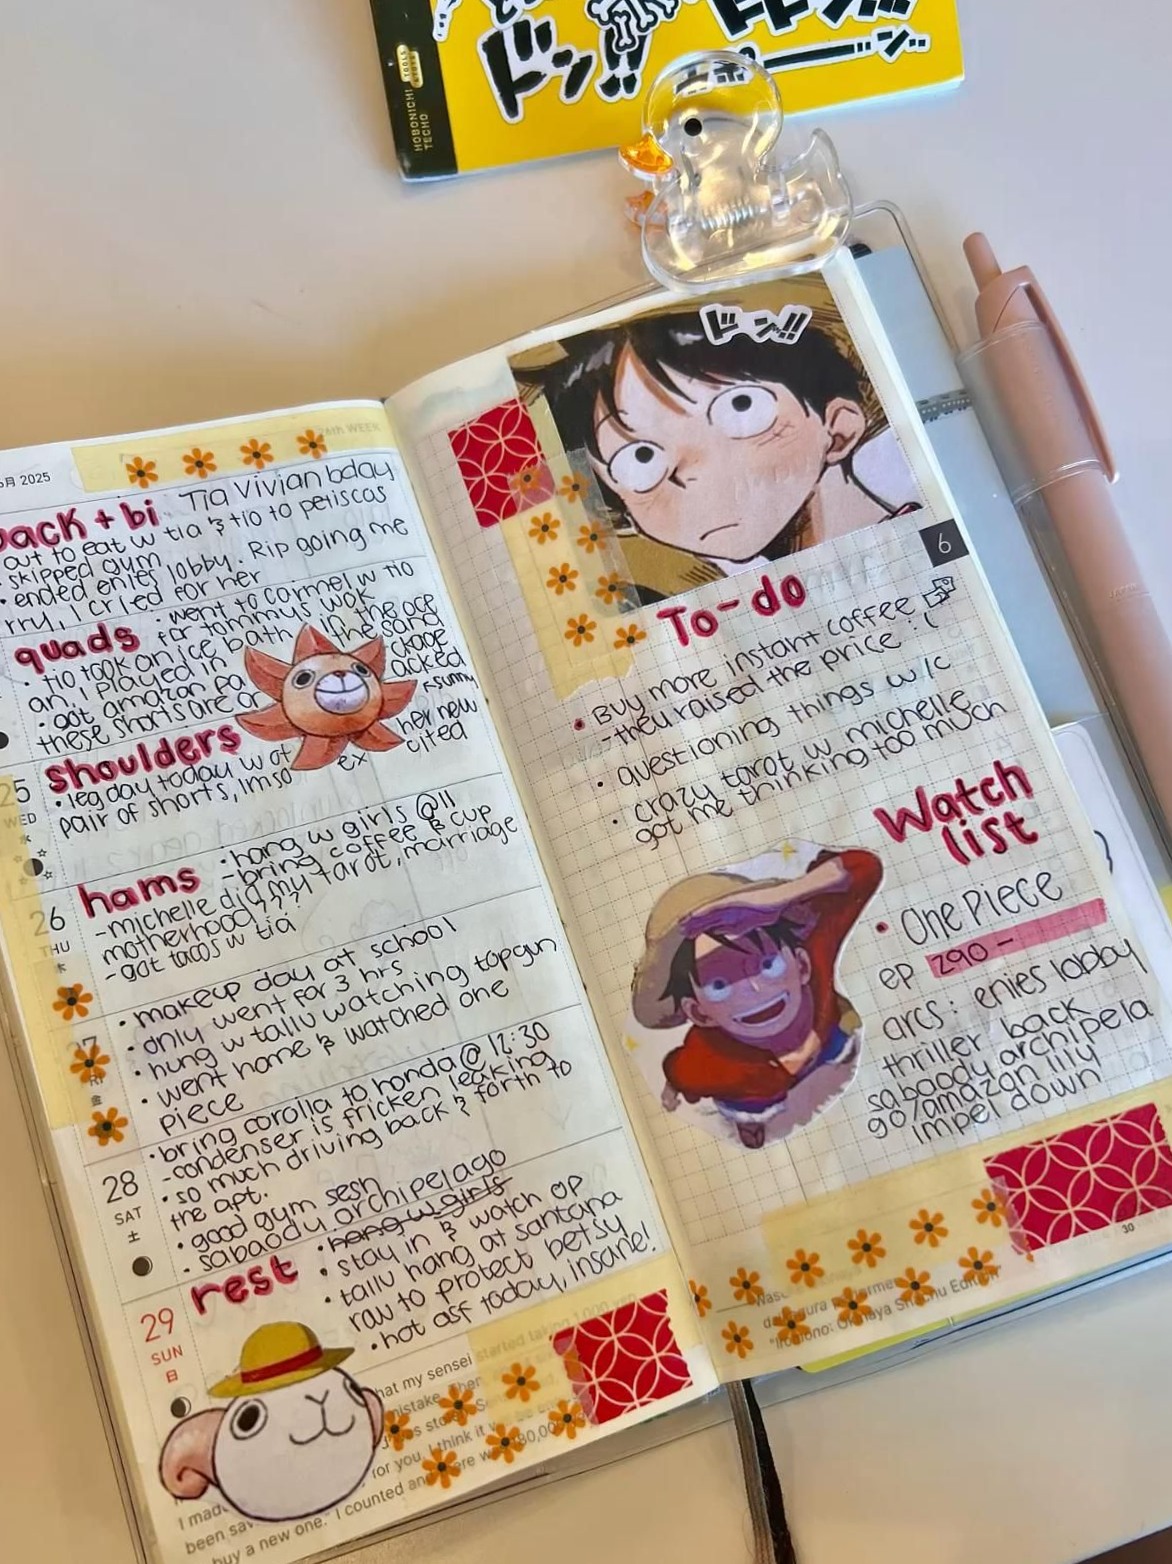 ドン!!
ン
HOBONICHI
TECHO
TOOLS
ドン!!
26th WEEK
6月 2025
back + bi
Tia Vivian bday
out to eat w tia & tio to petiscas
• skipped gym
• ended enies lobby. Rip going me
rry, I cried for her
quads
• went to carmel w tio
for tommys wok
• tio took an ice bath in the oce
an, I played in the sand
• got amazon pa ckage
these shorts are a acked
shoulders
+ sunny
• leg day today w ot her new
pair of shorts, im so ex cited
25
WED
hams
• hang w girls @ 11
- bring coffee & cup
- michelle did my tarot, marriage
motherhood,
- got tacos w tia
26
THU
木
• makeup day at school
• only went for 3 hrs
• hung w tallu watching topgun
• went home & watched one
piece
27
金
• bring corolla to honda @ 12:30
- condenser is fricken leaking
• so much driving back & forth to
the apt.
• good gym sesh
• sabaody archipelago
28
SAT
土
rest
• hang w girls
• stay in & watch op
• tallu hang at santana
row to protect betsy
• hot asf today, insane!
29
SUN
日
hat my sensei started taking 1,000 yen
mistake.
for you. I think it
I made
been sav
buy a new one." I counted and
6
To-do
• Buy more instant coffee
- they raised the price :(
• questioning things w/c
• crazy tarot w michelle
got me thinking too much
Watch
list
• One Piece
ep 290 -
arcs: enies lobby
thriller back
sabaody archipela
go/amazan lily
impel down
30